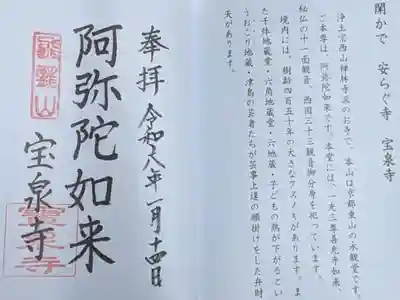 閑かで 安らぐ寺 宝泉寺
浄土宗西山禅林寺派のお寺で、本山は京都東山の永観堂です。
ご本尊は、阿弥陀如来です。本堂には、一光三尊善光寺如来、
秘仏の十一面観音、西国三十三観音御分身を祀っています。
境内には、樹齢四百五十年の大きなクスノキがあります。ま
た千体地蔵堂・六角地蔵堂・六地蔵・子どもの熱が下がるとい
うおこり地蔵・津島の芸者たちが芸事上達の願掛けをした弁財
天があります。
奉拝 令和八年一月十四日
阿弥陀如来
宝泉寺
龍亀山
宝泉寺